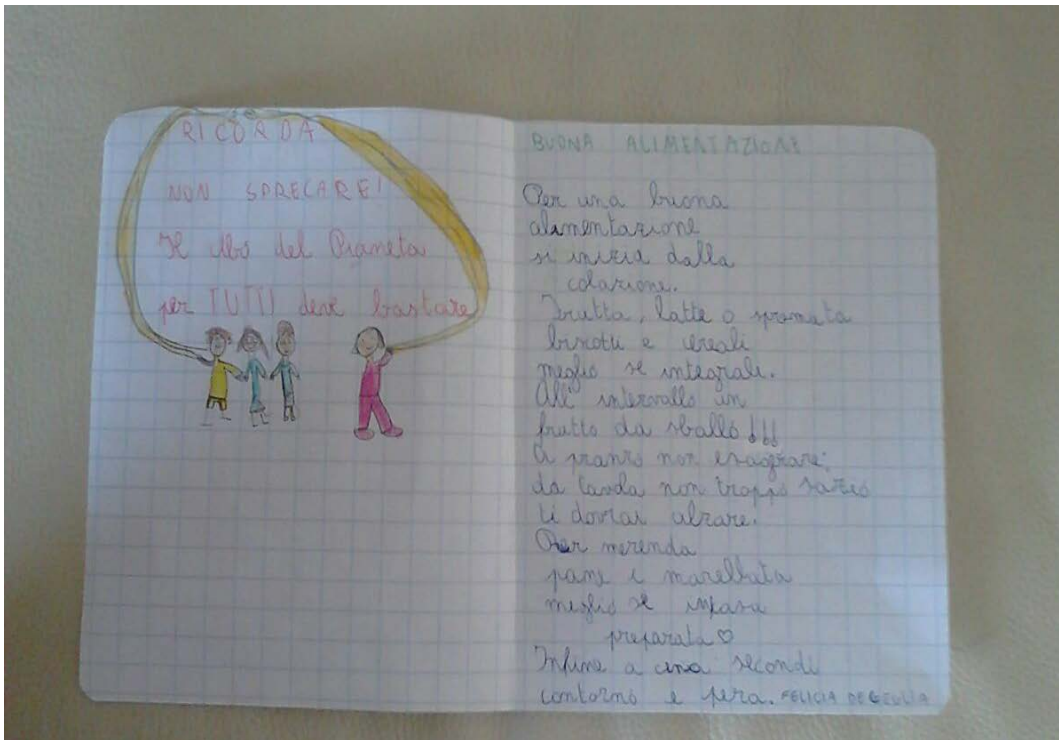 RICORDA
NON SPRECARE!
Il cibo del Pianeta
per TUTTI deve bastare
BUONA ALIMENTAZIONE
Per una buona
alimentazione
si inizia dalla
colazione.
Frutta, latte o spremuta
biscotti e cereali
meglio se integrali.
All' intervallo un
frutto da sballo!!!
A pranzo non esagerare:
da tavola non troppo sazio
ti dovrai alzare.
Per merenda
pane e marellata
meglio se in casa
preparata
Infine a cena secondi
contorno e pera. FELICIA